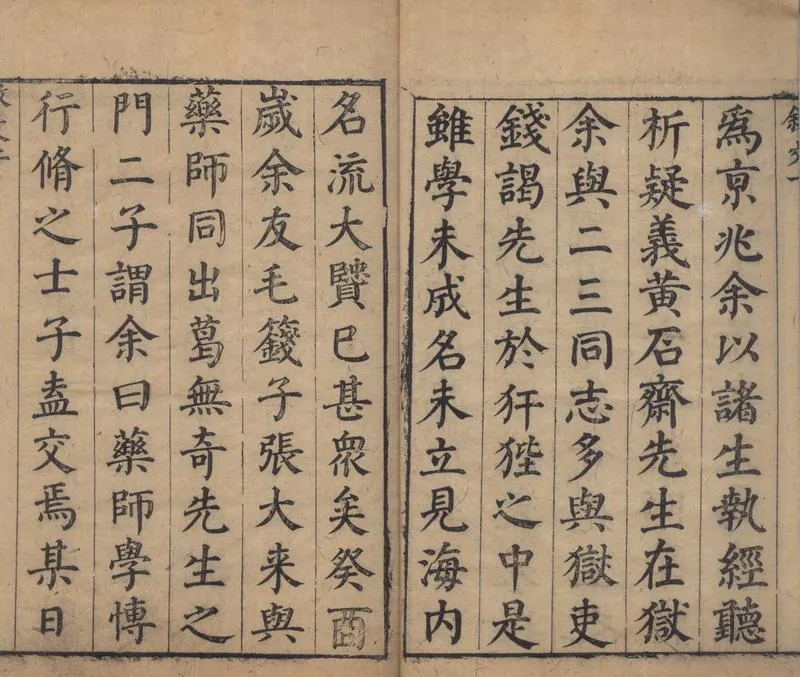 爲亰兆余以諸生執經聽
析疑義黃石齋先生在獄
余與二三同志多與獄吏
錢謁先生於犴狴之中是
雖學未成名未立見海内
名流大賢已甚衆矣癸酉
歲余友毛籛子張大来與
藥師同出葛無奇先生之
門二子謂余曰藥師學愽
行脩之士子盍交焉某日